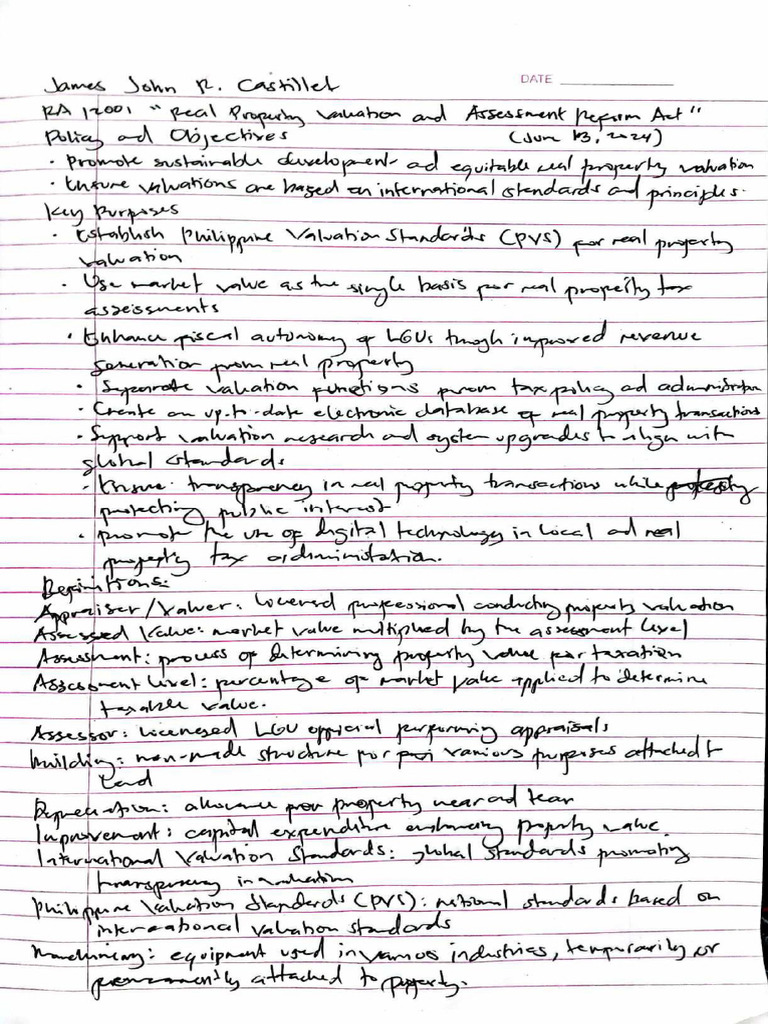 DATE
James John R. Castillet
RA 12001 "Real Property Valuation and Assessment Reform Act"
Policy and Objectives (June 13, 2024)
· Promote sustainable development and equitable real property valuation
· Ensure valuations are based on international standards and principles.
Key Purposes
· Establish Philippine Valuation Standards (PVS) for real property
valuation
· Use market value as the single basis for real property tax
assessments
· Enhance fiscal autonomy of LGUs through improved revenue
generation from real property
· Separate valuation functions from tax policy ad administration
· Create an up-to-date electronic database of real property transactions
· Support valuation research and system upgrades to align with
global standards
· Ensure transparency in real property transactions while
protecting public interest
· promote the use of digital technology in local ad real
property tax administration.
Definitions:
Appraiser/Valuer: licensed professional conducting property valuation
Assessed Value: market value multiplied by the assessment level
Assessment: process of determining property value for taxation
Assessment level: percentage of market value applied to determine
taxable value.
Assessor: licensed LGU official performing appraisals
Building: man-made structure for various purposes attached to
land
Depreciation: allowance for property wear and tear
Improvement: capital expenditure enhancing property value.
International Valuation Standards: global standards promoting
transparency in valuation
Philippine Valuation Standards (PVS): national standards based on
international valuation standards
Machinery: equipment used in various industries, temporarily or
permanently attached to property.